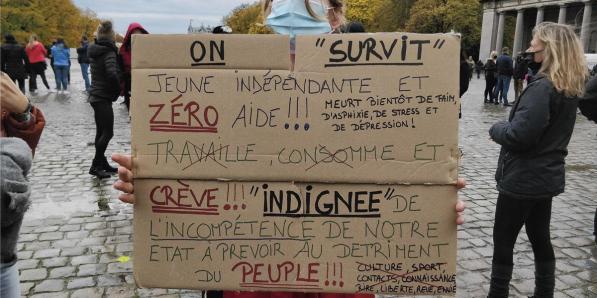 ON "SURVIT"
JEUNE INDÉPENDANTE ET
ZÉRO AIDE!!! MEURT BIENTÔT DE FAIM,
D'ASPHIXIE, DE STRESS ET
DE DÉPRESSION!
TRAVAILLE, CONSOMME ET
CRÈVE!!! "INDIGNEE" DE
L'INCOMPÉTENCE DE NOTRE
ETAT À PREVOIR AU DETRIMENT
DU PEUPLE!!! CULTURE, SPORT,
CONTACTS, CONNAISSANCE
RIRE, LIBERTE, REVE, ENVIE